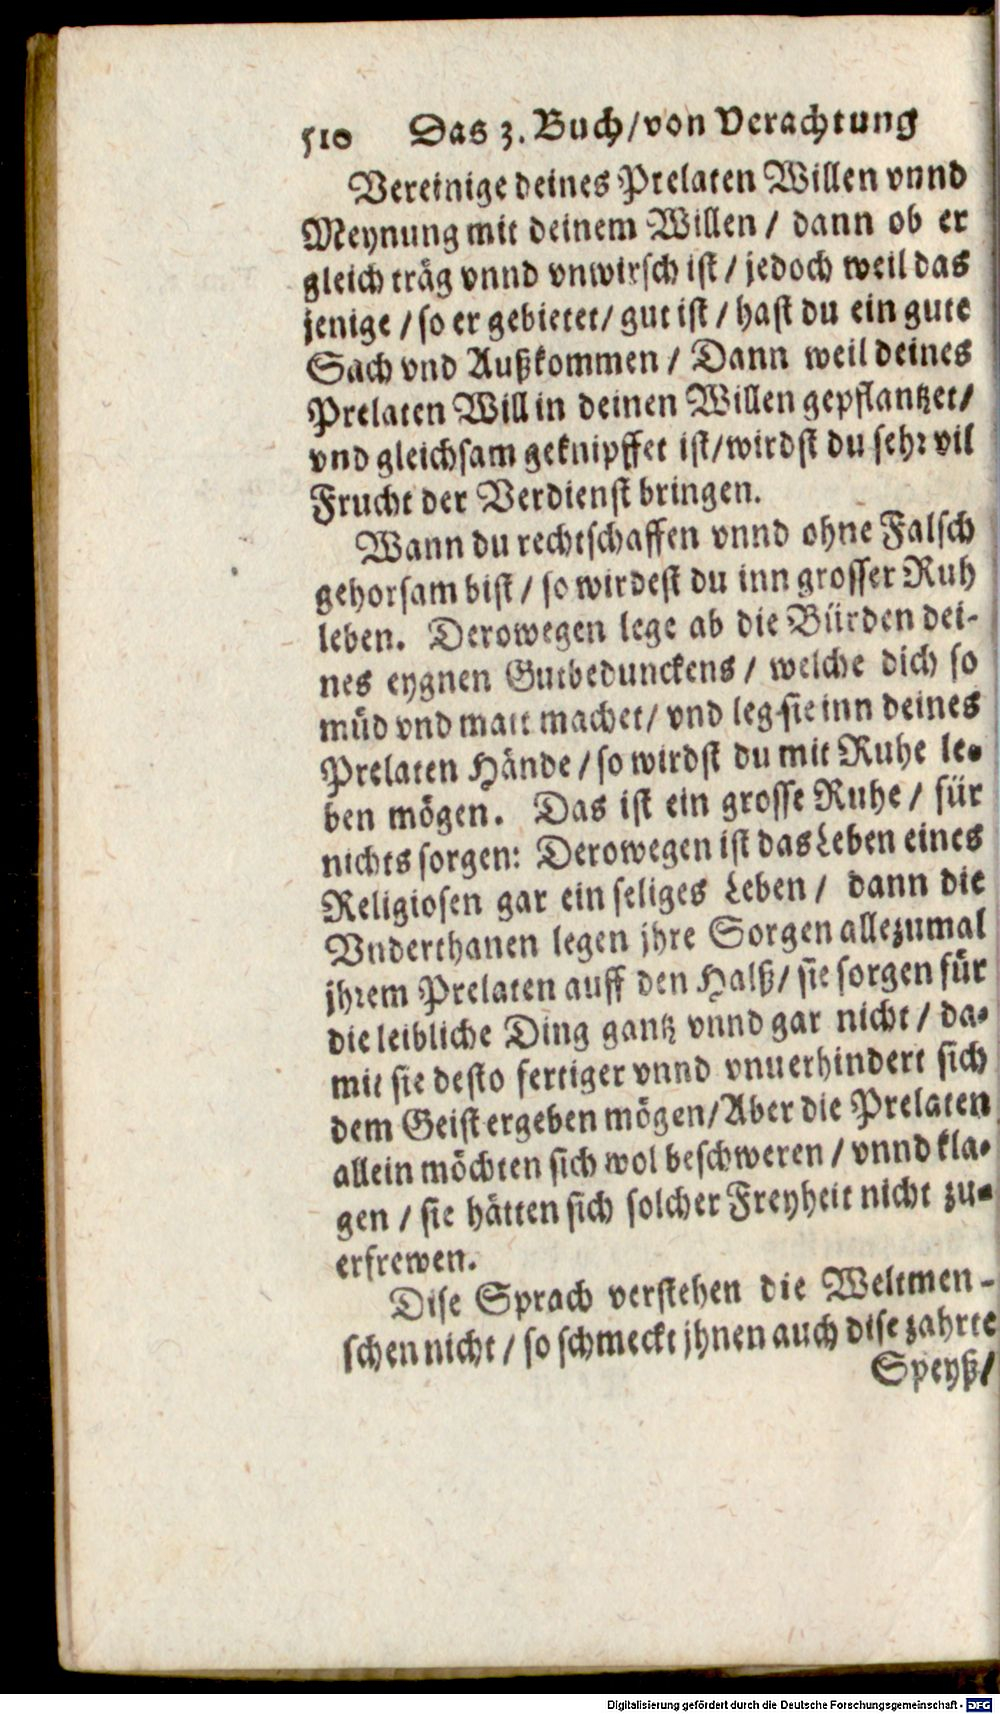 510 Das 3. Buch/von Verachtung
Vereinige deines Prelaten Willen vnnd
Meynung mit deinem Willen / dann ob er
gleich träg vnnd vnwirsch ist / jedoch weil das
jenige / so er gebietet/ gut ist / hast du ein gute
Sach vnd Außkommen / Dann weil deines
Prelaten Will in deinen Willen gepflantzet/
vnd gleichsam geknipffet ist/wirdst du sehr vil
Frucht der Verdienst bringen.
Wann du rechtschaffen vnnd ohne Falsch
gehorsam bist / so wirdest du inn grosser Ruh
leben. Derowegen lege ab die Bürden dei-
nes eygnen Gutbedunckens / welche dich so
müd vnd matt machet/ vnd leg sie inn deines
Prelaten Hände / so wirdst du mit Ruhe le-
ben mögen. Das ist ein grosse Ruhe / für
nichts sorgen: Derowegen ist das Leben eines
Religiosen gar ein seliges Leben / dann die
Vnderthanen legen jhre Sorgen allezumal
jhrem Prelaten auff den Halß/ sie sorgen für
die leibliche Ding gantz vnnd gar nicht / da-
mit sie desto fertiger vnnd vnuerhindert sich
dem Geist ergeben mögen/Aber die Prelaten
allein möchten sich wol beschweren / vnnd kla-
gen / sie hätten sich solcher Freyheit nicht zu-
erfrewen.
Dise Sprach verstehen die Weltmen-
schen nicht / so schmeckt jhnen auch dise zahrte
Speyß/
Digitalisierung gefördert durch die Deutsche Forschungsgemeinschaft - DFG